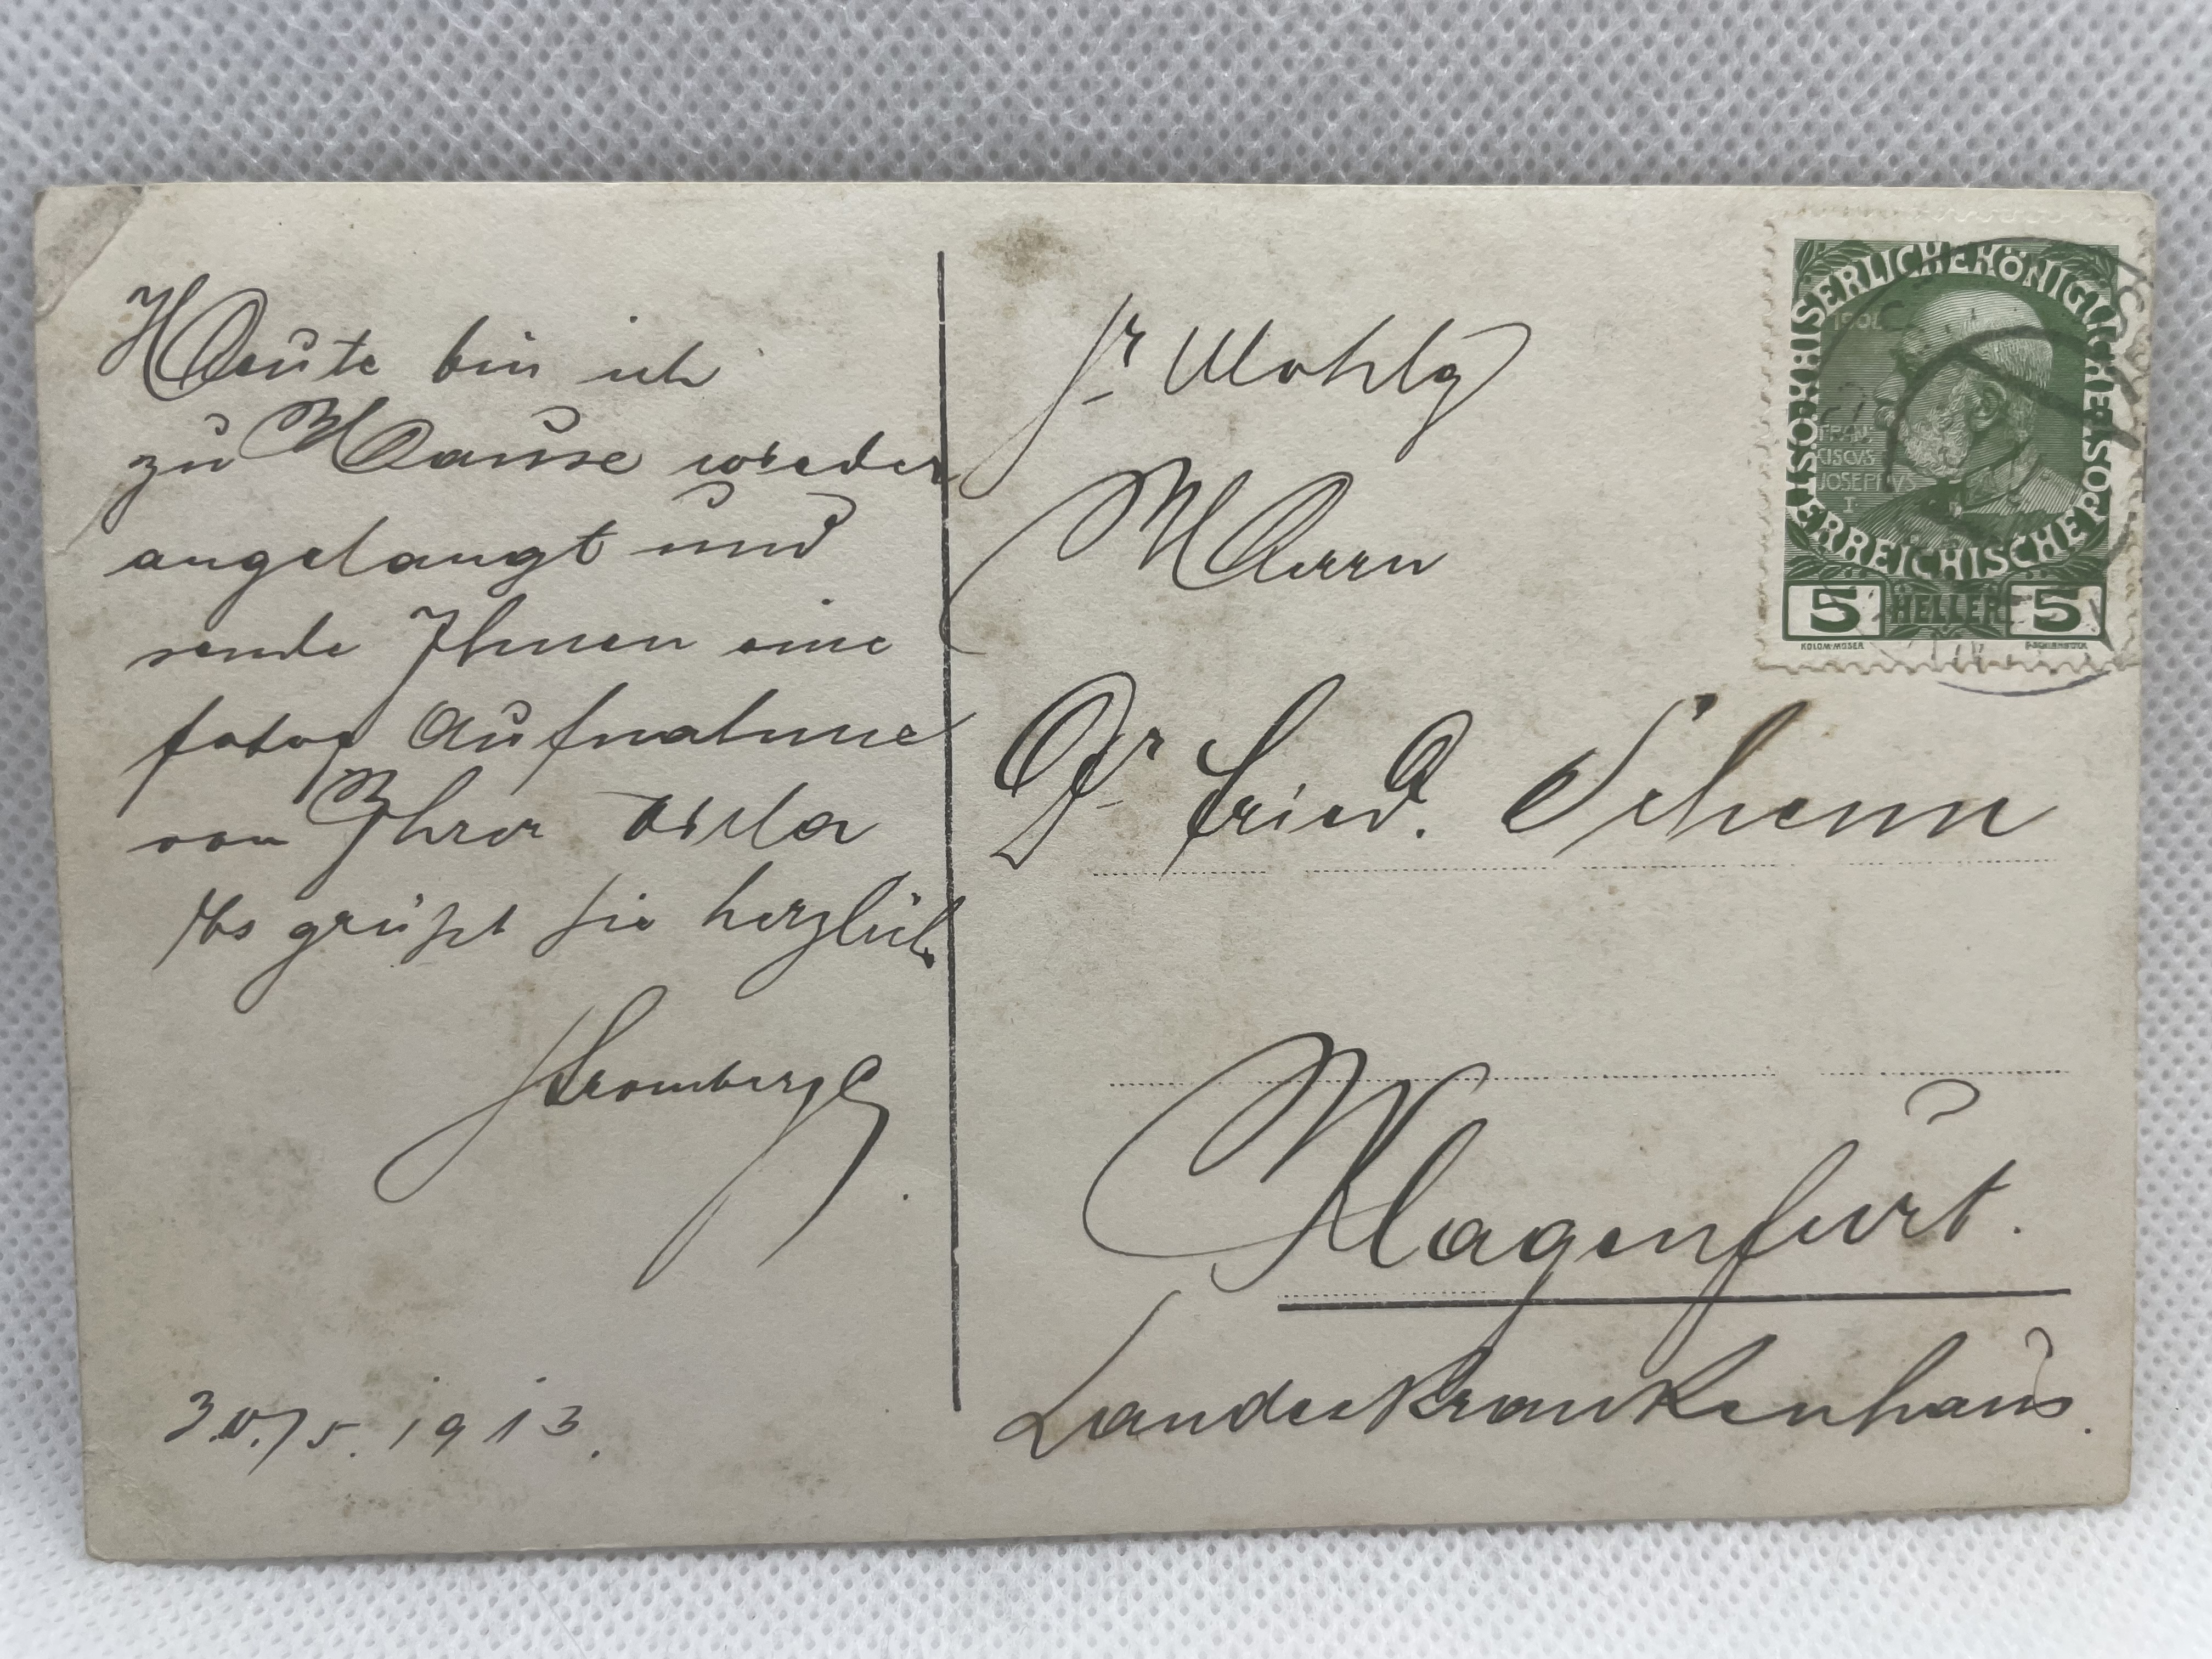 Heute bin ich
zu Hause wieder
angelangt und
sende Ihnen eine
fotog Aufnahme
von Ihrer
Es grüßt Sie herzlich
Stromberg
1913.
Sr Wohlg
Herrn
Dr Fried. Schenn
Klagenfurt.
Landeskrankenhaus.
KAISERLICHE KÖNIGLICHE
ÖSTERREICHISCHE POST
1908
FRAN
CISCVS
JOSEPHVS
I
5 HELLER 5
KOLOM·MOSER